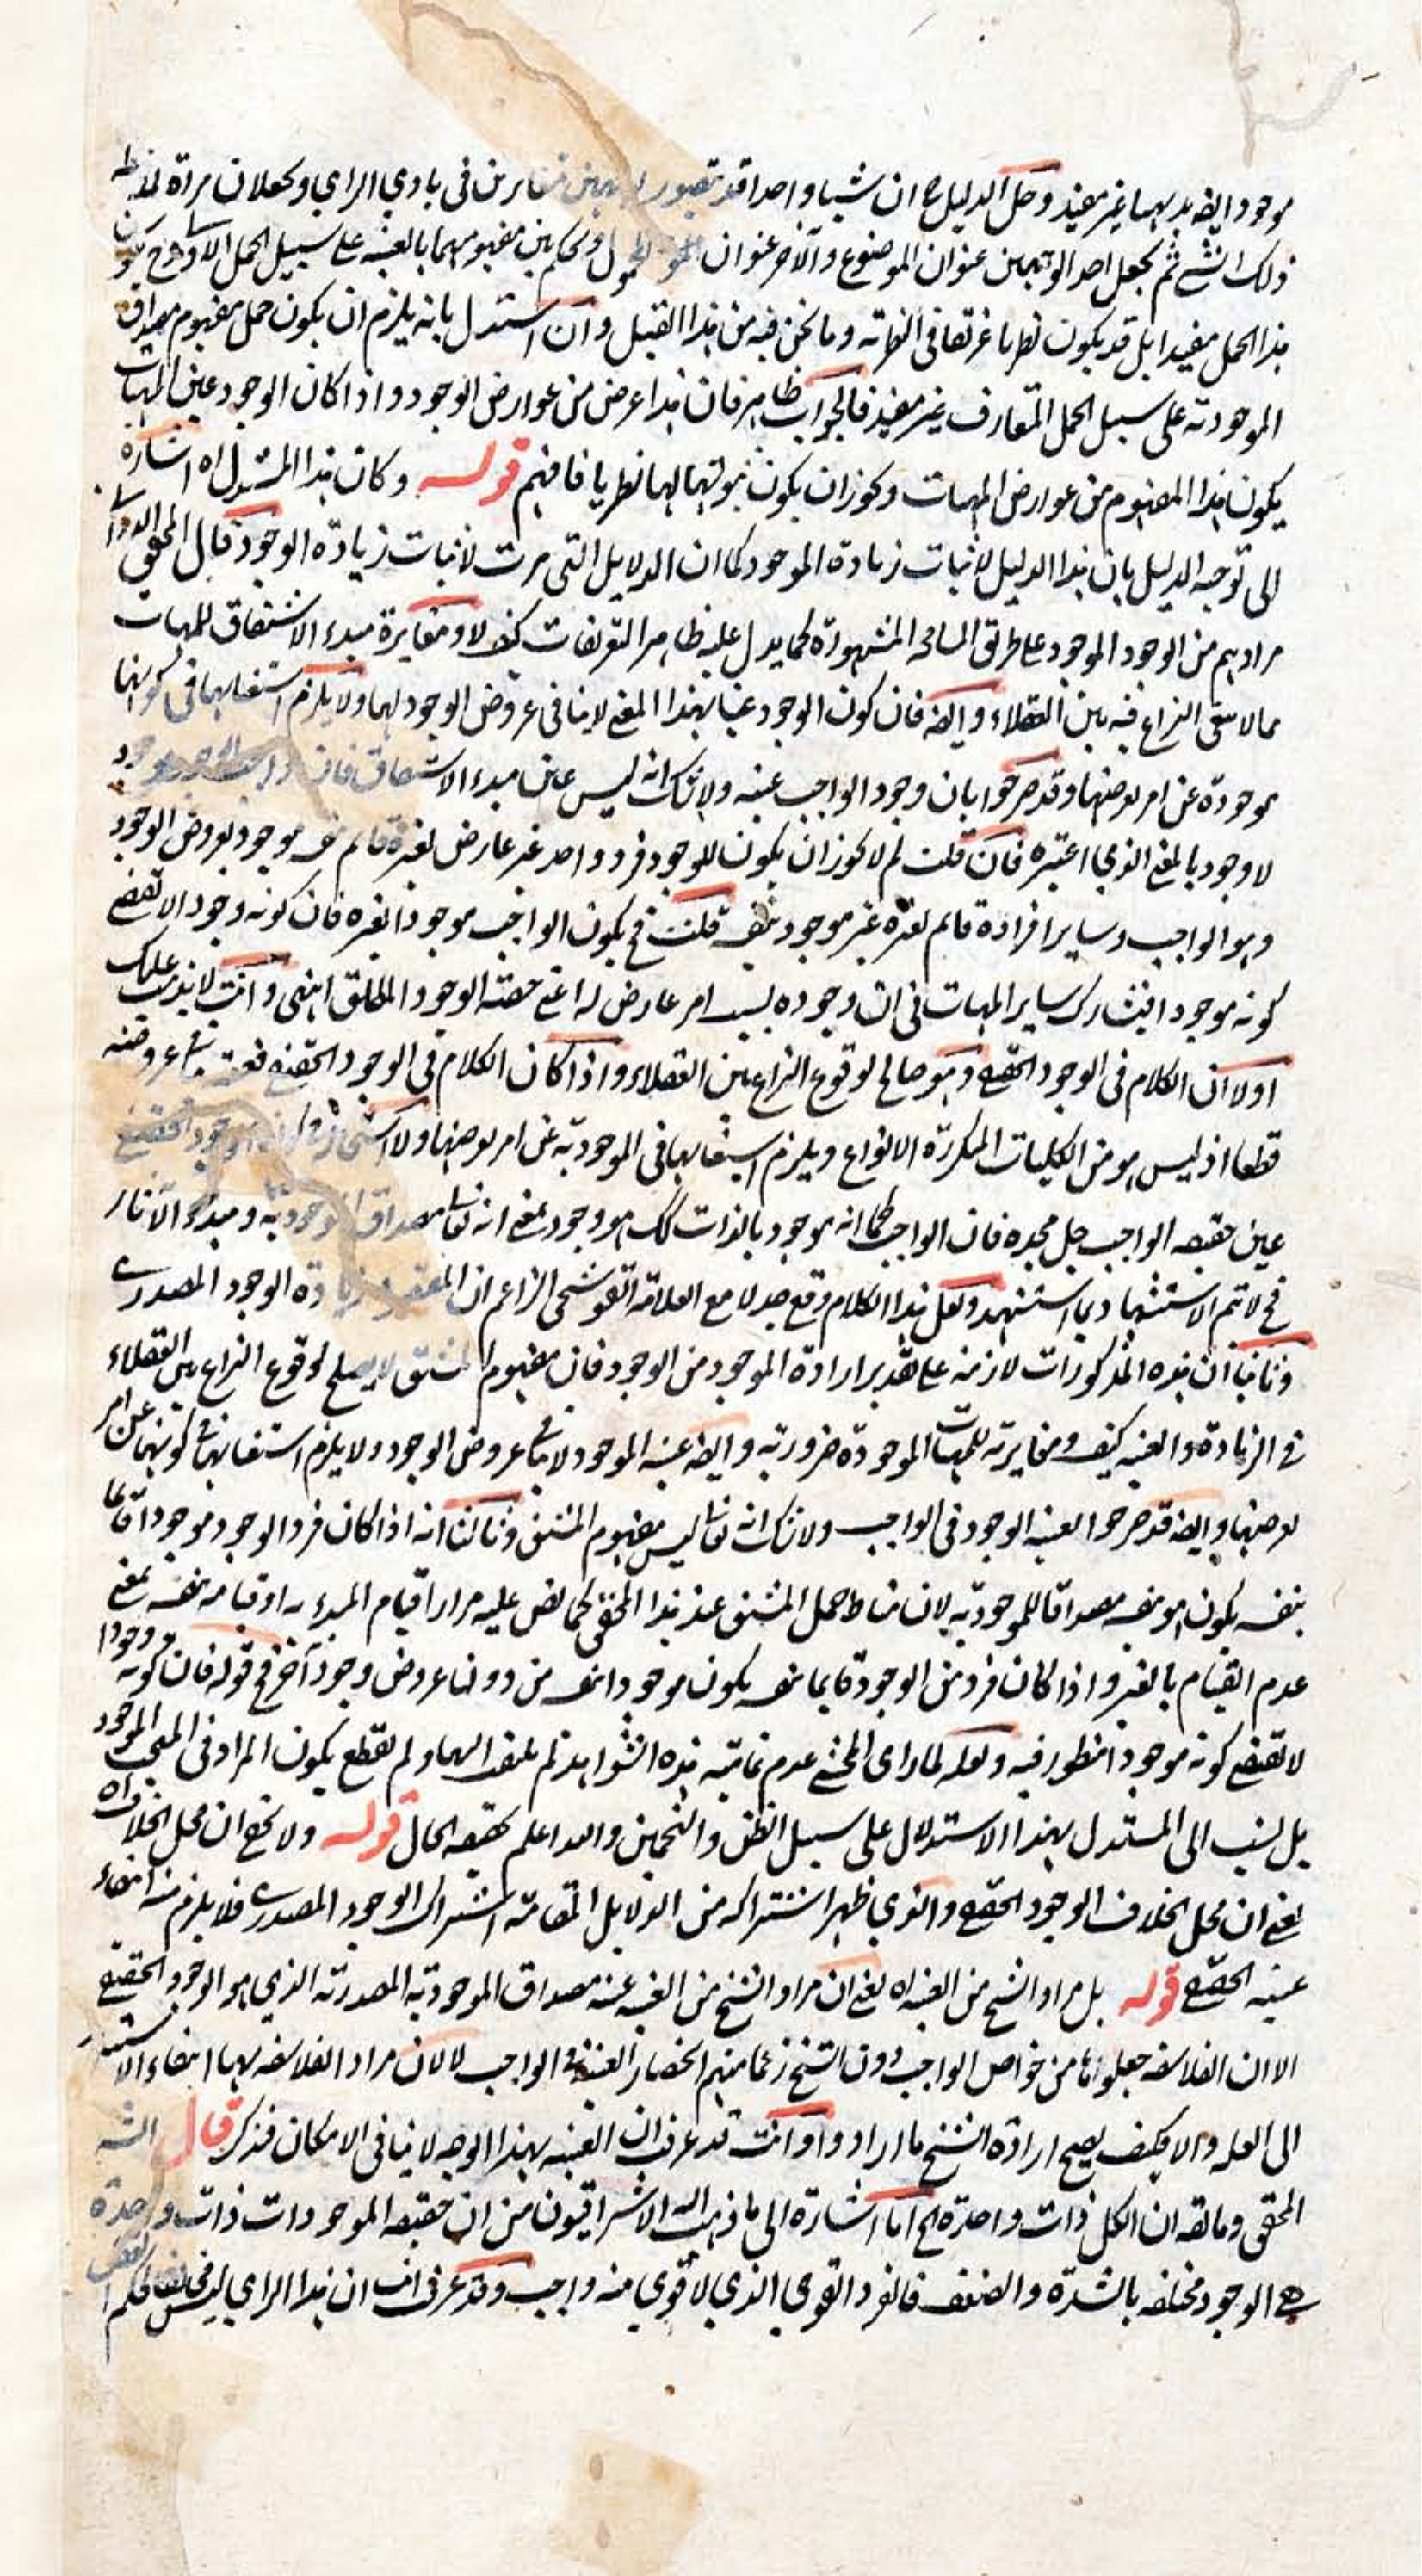 موجود ايضه بديهيا غير مفيد وحل الدليل ان شيا واحدا قد تصور بوجهين متغايرين فى بادى الراى ويجعلان مراة لملاحظه
ذلك الشے ثم يجعل احد الوجهين عنوان الموضوع والآخر عنوان المحمول ويحكم بين مفهوميهما بالعينيه على سبيل الحمل الاولى وح يكون
هذا الحمل مفيدا بل قد يكون نظريا فى النظريه وما نحن فيه من هذا القبيل وان استدل بانه يلزم ان يكون حمل مفهوم مصداق
الموجوديه على سبيل الحمل المتعارف غير مفيد فالجواب ظاهر فان هذا عرض من عوارض الوجود واذا كان الوجود عين المهيات
يكون هذا المفهوم من عوارض المهيات ويجوز ان يكون ثبوتهما لهما نظريا فافهم قوله وكان هذا المستدل اه اشارة
الى توجيه الدليل بان هذا الدليل لاثبات زيادة الموجود كما ان الدلايل التى مرت لاثبات زيادة الوجود قال المحقق الدوانى
مرادهم من الوجود الموجود على طريق المسامحه المشهورة كما يدل عليه ظاهر التعريفات كيف لا ومغايرة مبدء الاشتقاق للمهيات
مما لا يبقى النزاع فيه بين العقلاء وايضه فان كون الوجود عينا بهذا المعنے لا ينافى عروض الوجود لهما ولا يلزم استغنايهما فى كونهما
موجودة عن امر يعرضها وقد صرحوا بان وجود الواجب عينه ولا شك انه ليس عين مبدء الاشتقاق فان الواجب موجود
لا وجود بالمعنے الذى اعتبره فان قلت لم لا يجوز ان يكون للوجود فرد واحد غير عارض لغيره قايم بنفسه موجود بعروض الوجود
وهو الواجب وساير افراده قايم بغيره غير موجود بنفسه قلت فح يكون الواجب موجودا بغيره فان كونه وجودا لا تقتضے
كونه موجودا فيشارك ساير المهيات فى ان وجوده بسبب امر عارض له اعنے حصته الوجود المطلق انتهى وانت لا يذهب عليك
اولا ان الكلام فى الوجود الحقيقے وهو صالح لوقوع النزاع بين العقلاء واذا كان الكلام فى الوجود الحقيقے فعينيته ينافى عروضه
قطعا اذ ليس هو من الكليات المكررة الانواع ويلزم استغنايها فى الموجوديه عن امر يعرضها ولا استحاله فى كون الوجود الحقيقے
عين حقيقه الواجب جل مجده فان الواجب كما انه موجود بالذات كك هو وجود بمعنے انه تعالى مصداق الموجوديه ومبدء الآثار
فح لا تتم الاستشهاد بما استشهد ولعل هذا الكلام وقع جدلا مع العلامه القوشجى الزاعم ان المقصود زيادة الوجود المصدرے
وثانيا ان هذه المذكورات لازمه على تقدير ارادة الموجود من الوجود فان مفهوم المشتق لا يصلح لوقوع النزاع بين العقلاء
فى الزيادة والعينيه كيف ومغايرته للمهيات الموجودة ضروريه وايضه عينيه الموجود لا ينافى عروض الوجود ولا يلزم استغنائها فى كونها عن امر
يعرضها وايضه قد صرحوا بعينيه الوجود فى الواجب ولا شك انه تعالى ليس مفهوم المشتق وثالثا انه اذا كان فرد الوجود موجودا قايما
بنفسه يكون هو بنفسه مصداقا للموجوديه لان مناط حمل المشتق عند هذا المحقق كما نص عليه مرارا قيام المبدء به او قيامه بنفسه بمعنے
عدم القيام بالغير واذا كان فرد من الوجود قايما بنفسه يكون موجودا بنفسه من دون عروض وجود آخر فح قوله فان كونه وجودا
لا تقتضے كونه موجودا منظور فيه ولعله لما راى المحشے عدم تماميه هذه الشواهد لم يلتفت اليهما ولم يقطع بكون المراد فى المبحث الموجود
بل نسب الى المستدل بهذا الاستدلال على سبيل الظن والتخمين والله اعلم بحقيقه الحال قوله ولا يخفے ان محل الخلاف اه
يعنے ان محل الخلاف الوجود الحقيقے والذى ظهر اشتراكه من الدلايل المقامه اشتراك الوجود المصدرے فلا يلزم منه انتفاء
عينيه الحقيقے قوله بل مراد الشيخ من العينيه اه يعنے ان مراد الشيخ من العينيه عينيه مصداق الموجوديه المصدريه الذى هو الوجود الحقيقے
الا ان الفلاسفه جعلوها من خواص الواجب دون الشيخ زعما منهم انحصار العينيه فى الواجب لا لان مراد الفلاسفه بهما انتفاء الاستناد
الى العله والا فكيف يصح ارادة الشيخ ما ارادوا وانت قد عرفت ان العينيه بهذا الوجه لا ينافى الامكان فتذكر قال الشه
المحقق وما يقه ان الكل ذات واحدة الح اما اشارة الى ما ذهب اليه الاشراقيون من ان حقيقه الموجودات ذات واحدة
هے الوجود مختلفه بالشدة والضعف فالفرد القوى الذى لا اقوى منه واجب وقد عرفت ان هذا الراى ليس مخالفا لحكم العقل